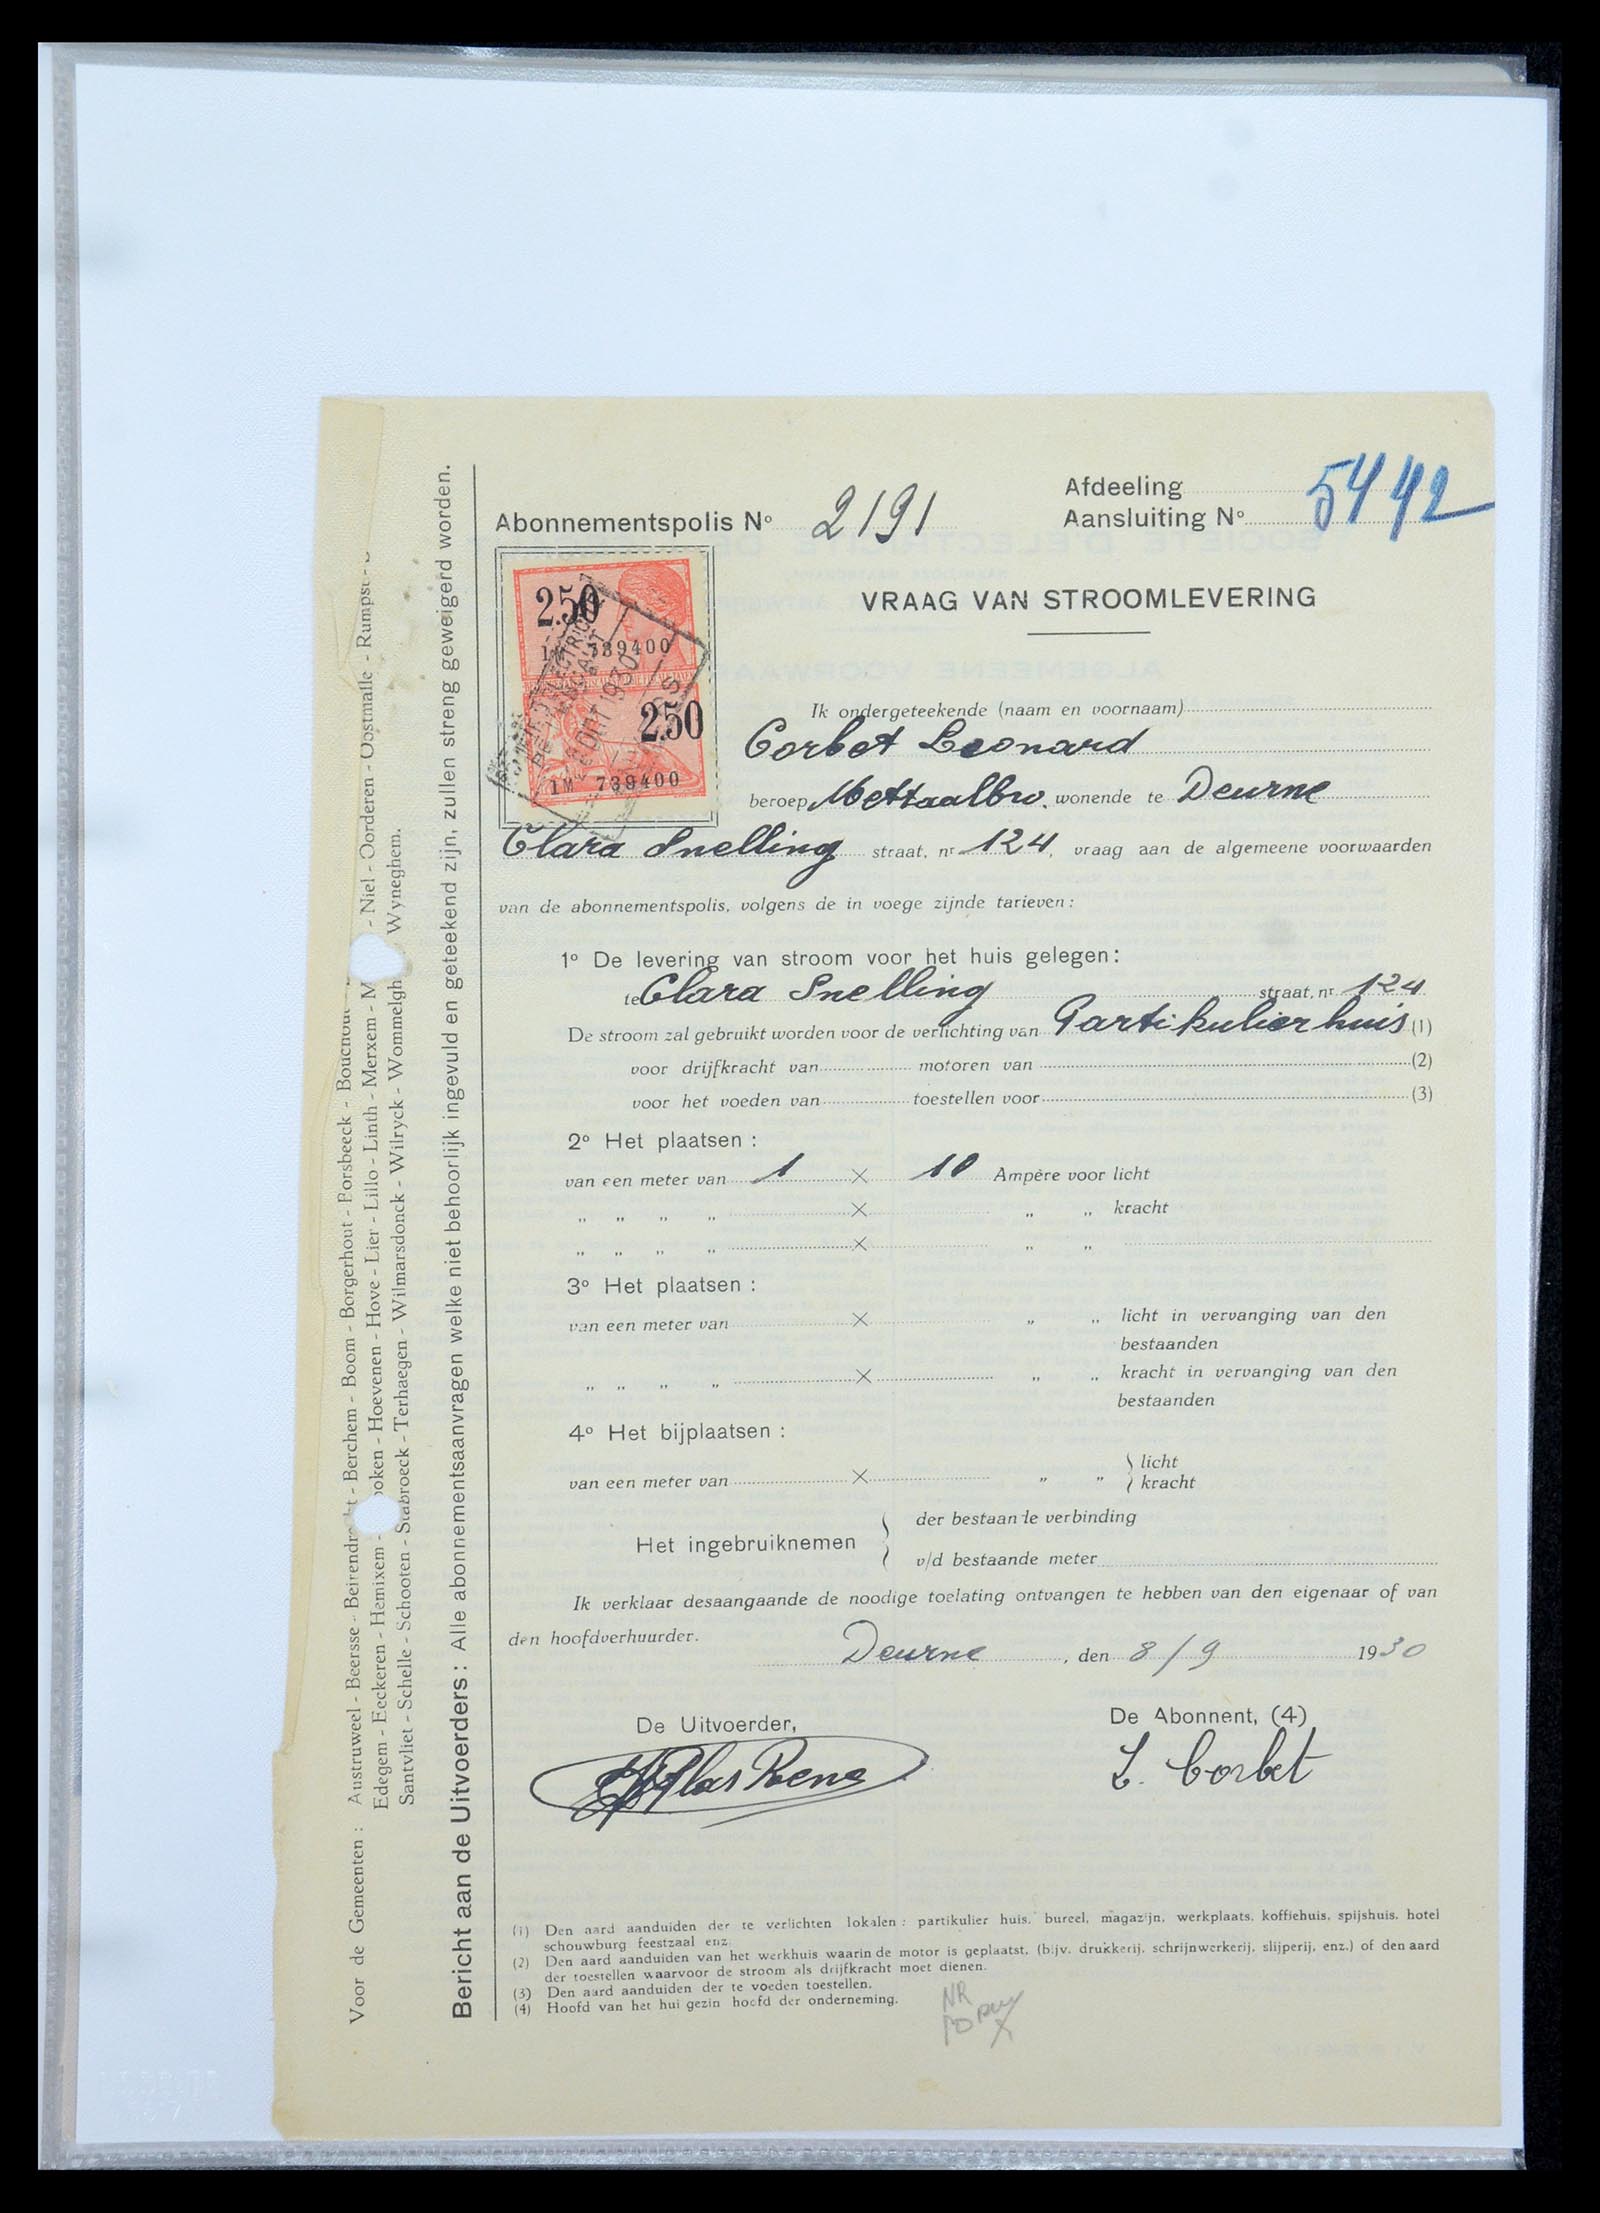 Abonnementspolis No 2191
Afdeeling
Aansluiting No 5442
VRAAG VAN STROOMLEVERING
2.50
1M 739400
2.50
1M 739400
Ik ondergeteekende (naam en voornaam)
Corbet Leonard
beroep Mettaalbw. wonende te Deurne
Clara Snelling straat, nr 124, vraag aan de algemeene voorwaarden
van de abonnementspolis, volgens de in voege zijnde tarieven :
1o De levering van stroom voor het huis gelegen :
te Clara Snelling straat, nr 124
De stroom zal gebruikt worden voor de verlichting van Partikulier huis (1)
voor drijfkracht van motoren van (2)
voor het voeden van toestellen voor (3)
2o Het plaatsen :
van een meter van 1 × 10 Ampère voor licht
„ „ „ „ × „ „ kracht
„ „ „ „ × „ „
3o Het plaatsen :
van een meter van × „ „ licht in vervanging van den
bestaanden
„ „ „ „ × „ „ kracht in vervanging van den
bestaanden
4o Het bijplaatsen :
van een meter van × „ „ } licht
kracht
Het ingebruiknemen { der bestaande verbinding
v/d bestaande meter
Ik verklaar desaangaande de noodige toelating ontvangen te hebben van den eigenaar of van
den hoofdverhuurder.
Deurne, den 8/9 1930
De Uitvoerder,
De Abonnent, (4)
Rene
L. Corbet
(1) Den aard aanduiden der te verlichten lokalen : partikulier huis, bureel, magazijn, werkplaats, koffiehuis, spijshuis, hotel
schouwburg feestzaal enz.
(2) Den aard aanduiden van het werkhuis waarin de motor is geplaatst, (bijv. drukkerij, schrijnwerkerij, slijperij, enz.) of den aard
der toestellen waarvoor de stroom als drijfkracht moet dienen.
(3) Den aard aanduiden der te voeden toestellen.
(4) Hoofd van het hui gezin hoofd der onderneming.
NR
Voor de Gemeenten : Austruweel - Beersse - Beirendrecht - Berchem - Boom - Borgerhout - Borsbeeck - Bouchout
Niel - Oorderen - Oostmalle - Rumpst -
Edegem - Eeckeren - Hemixem - oken - Hoevenen - Hove - Lier - Lillo - Linth - Merxem - M
Santvliet - Schelle - Schooten - Stabroeck - Terhaegen - Wilmarsdonck - Wilryck - Wommelgh Wyneghem.
Bericht aan de Uitvoerders : Alle abonnementsaanvragen welke niet behoorlijk ingevuld en geteekend zijn, zullen streng geweigerd worden.